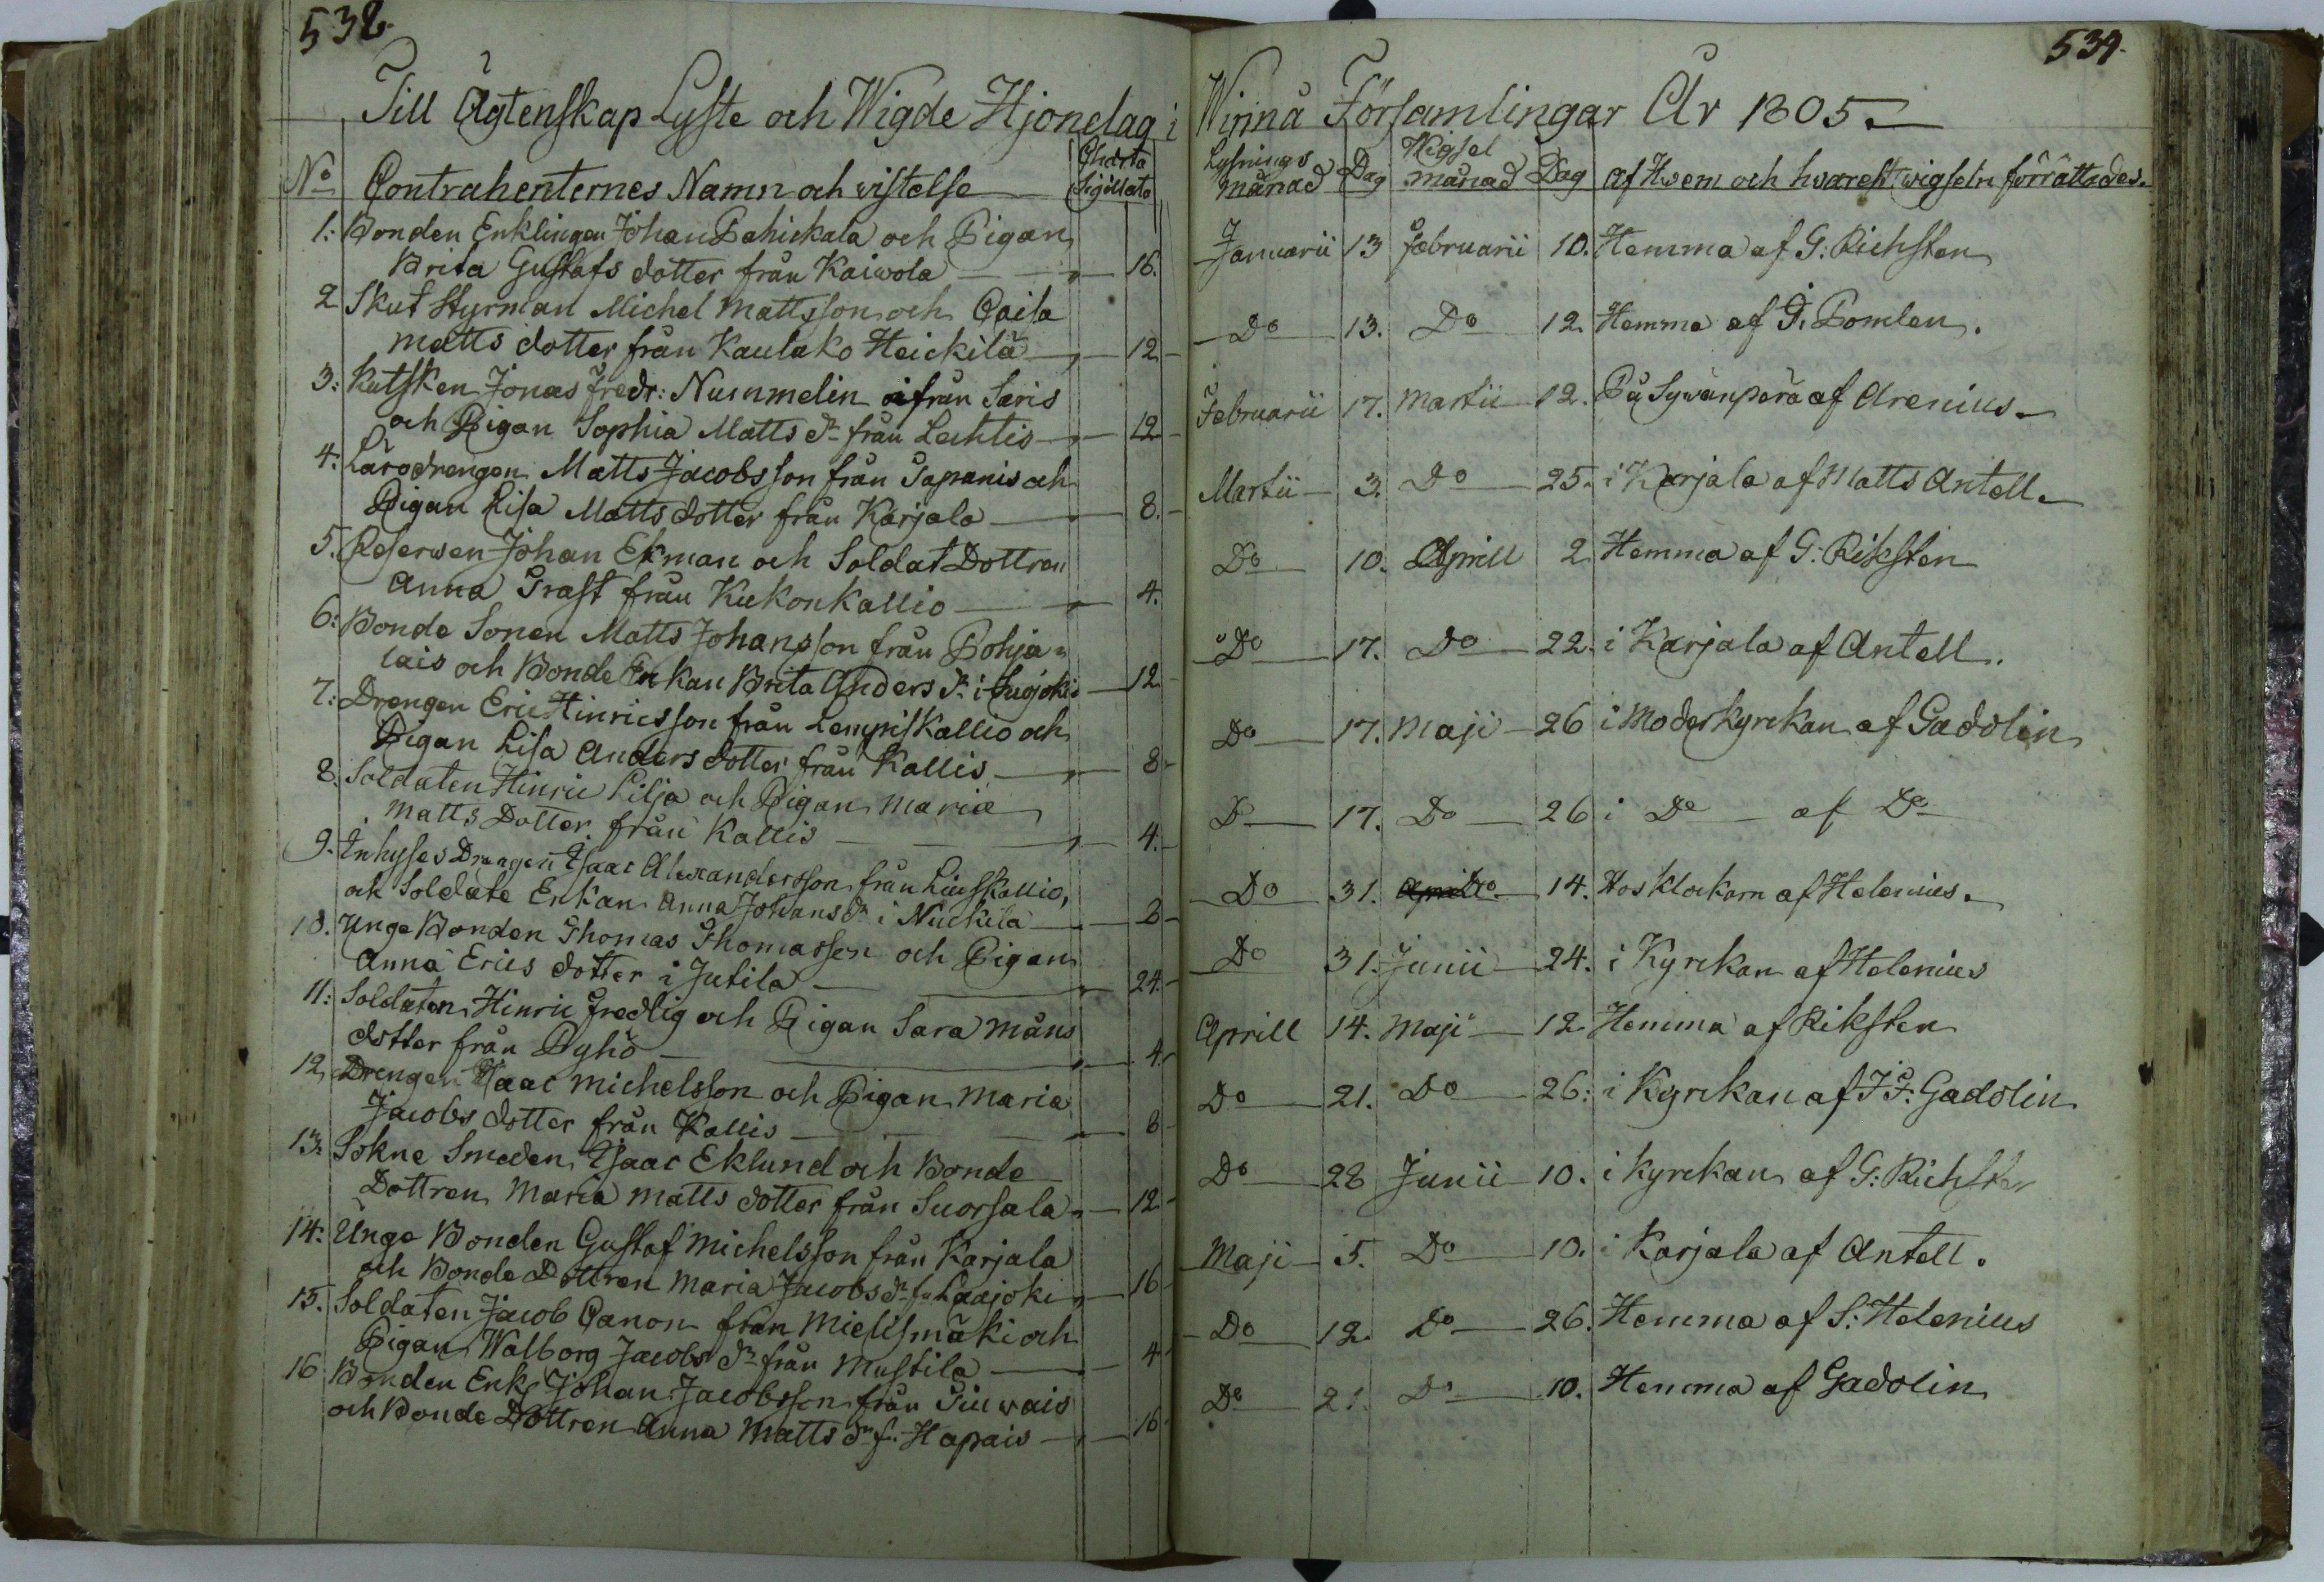 538.
Till Ägtenskap Lyste och Wigde Hjonelag i
No Contrahenternes Namn och wistelse Charta Sigillata
1: Bonden Enklingen Johan Pehickala och Pigan
Brita Gustafs dotter från Kaiwola 16.
2 Skut Styrman Michel Mattsson och Caisa
Matts dotter från Kaulako Heickilä 12
3: Kutsken Jonas Fredr: Nummelin ifrån Saris
och Pigan Sophia Matts dr från Lechtis 12
4: Lärodrengen Matts Jacobsson från Tapanis och
Pigan Lisa Matts dotter från Karjala 8.
5. Reserwen Johan Ekman och Soldat Dottren
Anna Trast från Kukonkallio 4.
6: Bonde Sonen Matts Johansson från Pohja=
lais och Bonde Enkan Brita Anders dr i 12
7: Drengen Eric Hinricsson från Lempriskallio och
Pigan Lisa Anders dotter från Kallis 8
8. Soldaten Hinric Lilja och Pigan Maria
Matts Dotter från Kallis 4.
9. Inhyses Drengen Isaac Alexandersson från Liuskallio,
och Soldate Enkan Anna Johans dr i Nuckila 2
10. Unge Bonden Thomas Thomasson och Pigan
Anna Erics dotter i Jutila 24.
11: Soldaten Hinric Fredlig och Pigan Sara Måns
dotter från Pyhö 4
12 Drengen Isaac Michelsson och Pigan Maria
Jacobs dotter från Kallis 8
13: Sokne Smeden Isaac Eklund och Bonde
Dottren Maria Matts dotter från Suorsala 12
14: Unge Bonden Gustaf Michelsson från Karjala
och Bonde Dottren Maria Jacobs dr fr Laajoki 16
15. Soldaten Jacob Canon från Mielismäki och
Pigan Walborg Jacobs dr från Mustila 4
16 Bonden Enkl Johan Jacobsson från Siuwais
och Bonde Dottren Anna Matts dr fr. Hapais 16
539.
Wirmå Församlingar År 1805.
Lysnings månad Dag Wigsel månad Dag af Hwem och hvarest wigseln förrättades.
Januarii 13 Februarii 10. Hemma af G: Richsten
Do 13. Do 12. Hemma af G: Pomlen.
Februarii 17. Martii 12. På Sywänperä af Arenius
Martii 3. Do 25. i Karjala af Matts Antell
Do 10. Aprill 2 Hemma af G: Riksten
Do 17. Do 22. i Karjala af Antell.
Do 17. Maji 26 i Moderkyrkan af Gadolin
Do 17. Do 26 i Do af Do
Do 31. Do 14. Hos Klockarn af Helenius.
Do 31. Junii 24. i Kyrckan af Helenius
Aprill 14. Maji 12 Hemma af Riksten
Do 21. Do 26: i Kyrckan af J F: Gadolin
Do 28 Junii 10. i Kyrckan af G: Richsten
Maji 5. Do 10. i Karjala af Antell.
Do 12. Do 26. Hemma af S: Helenius
Do 21. Do 10. Hemma af Gadolin